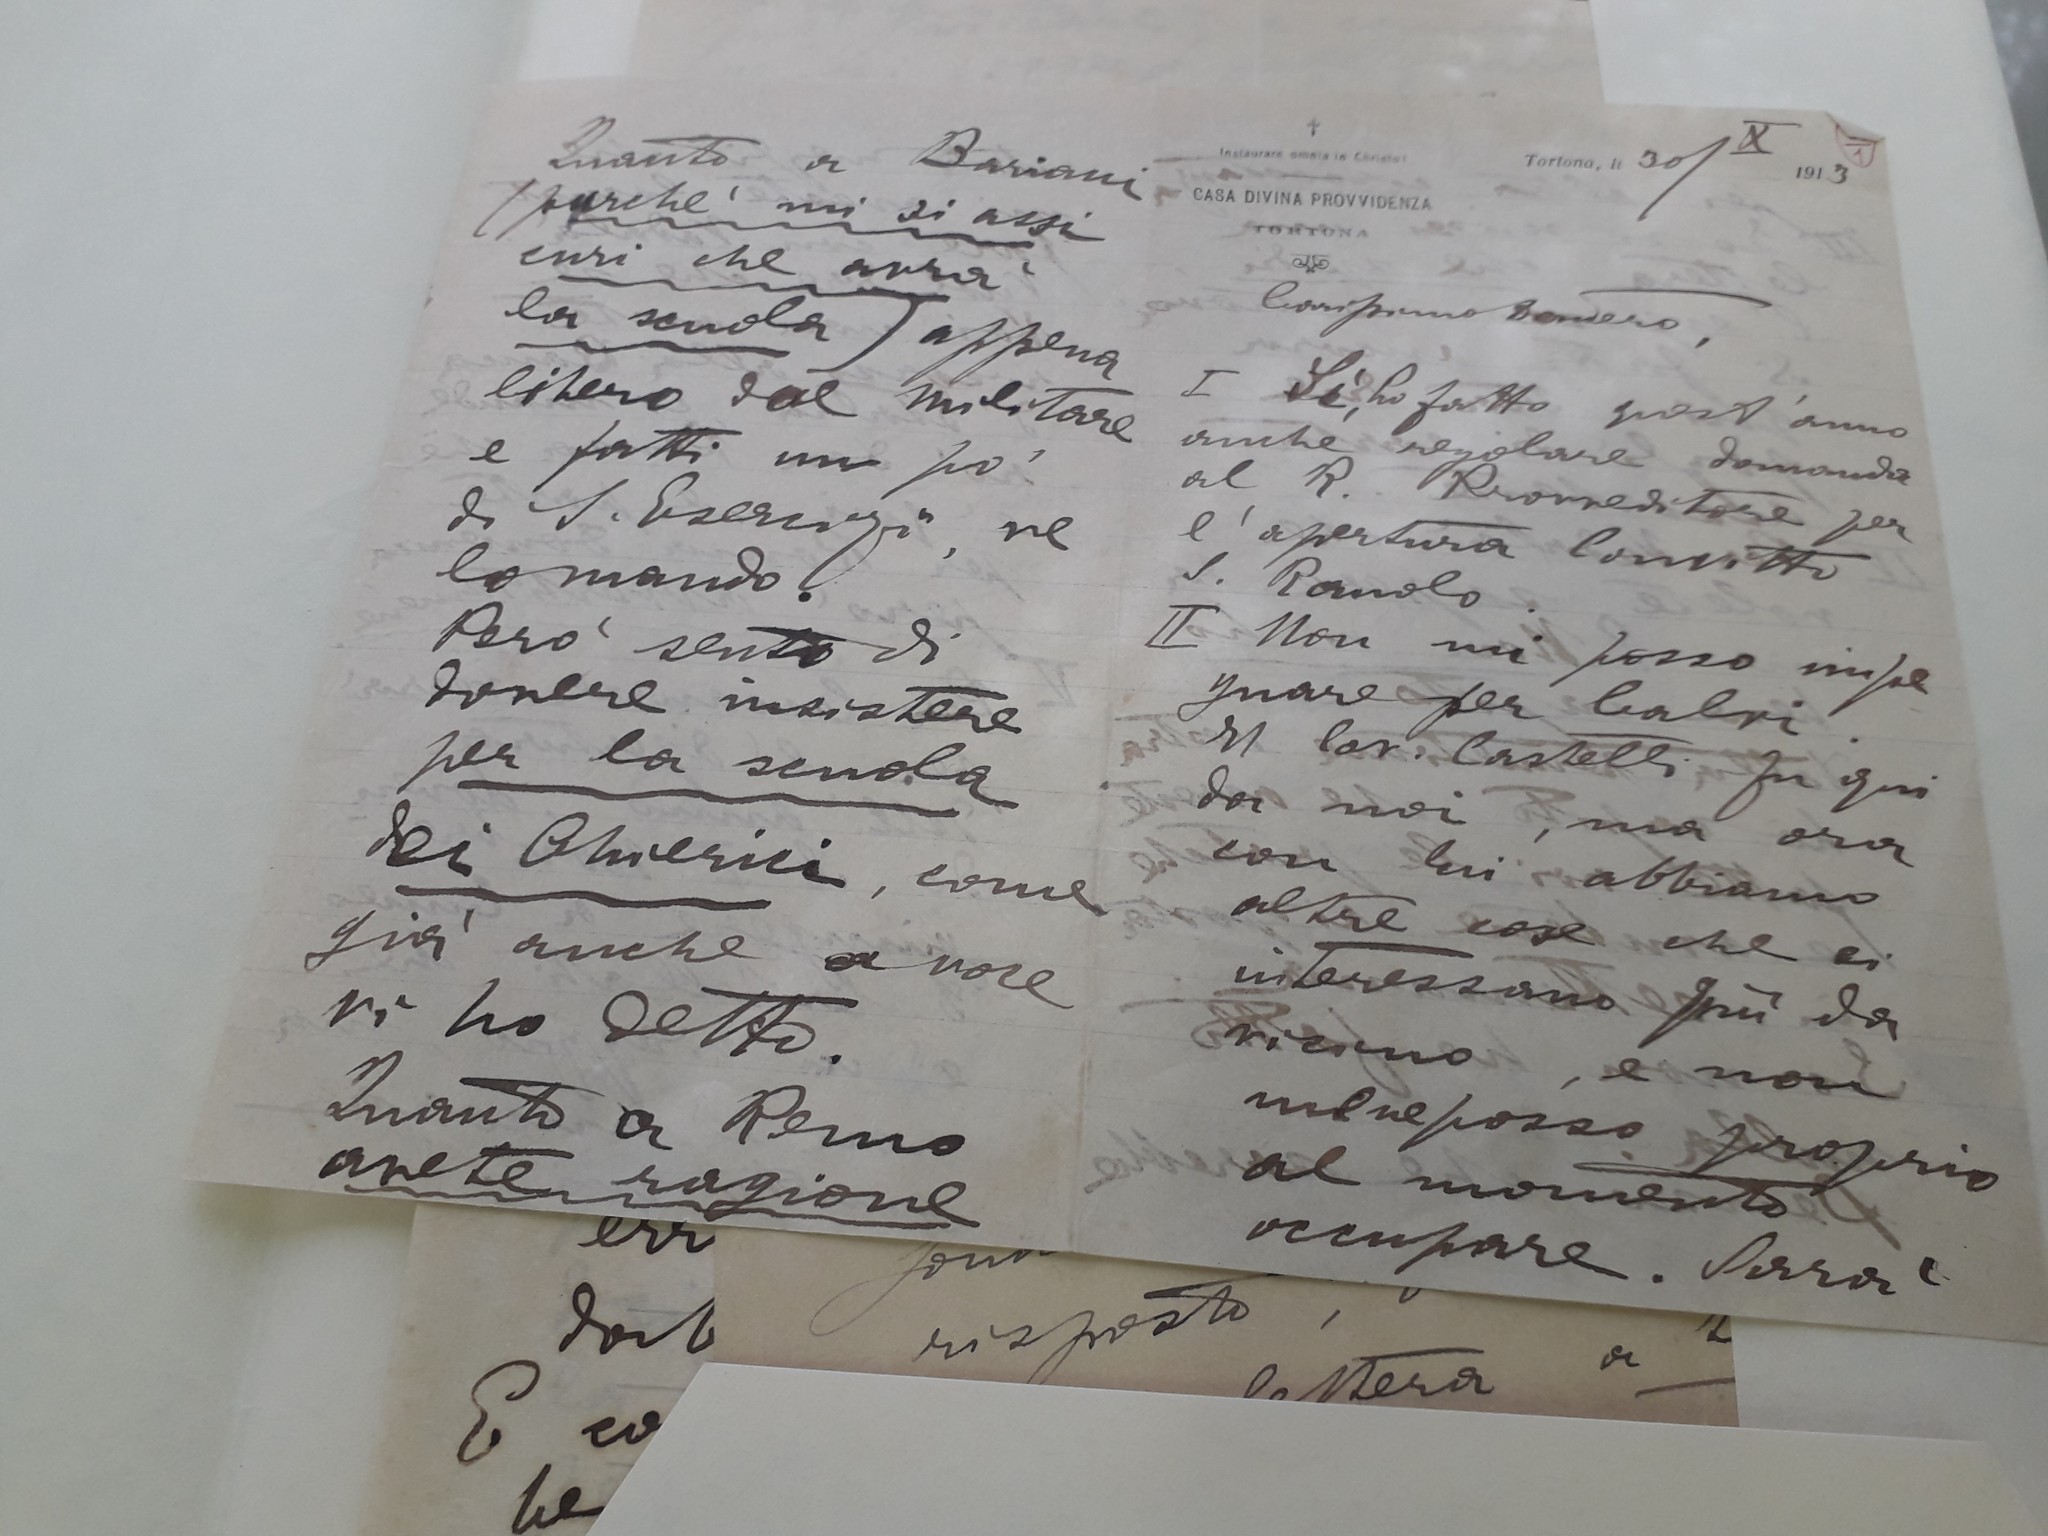 Instaurare omnia in Christo
CASA DIVINA PROVVIDENZA
TORTONA
Tortona, li 30/X 1913
1
Carissimo
I Sì, ho fatto quest'anno
anche regolare domanda
al R. Provveditore per
l'apertura Convitto
S.
II Non mi posso impe
gnare per Calvi.
Il Cav. Castelli fu qui
da noi, ma ora
con lui abbiamo
altre cose che ci
interessano più da
vicino, e non
me ne posso proprio
al momento
occupare. Sarà
Quanto a Bariani
(purché mi si assi
curi che avrà
la scuola) appena
libero dal militare
e fatti un po'
di S. Esercizi, ve
lo mando.
Però sento di
dovere insistere
per la scuola
dei Chierici, come
già anche a voce
vi ho detto.
Quanto a Remo
avete ragione
err
risposto,
lettera a
E co
he